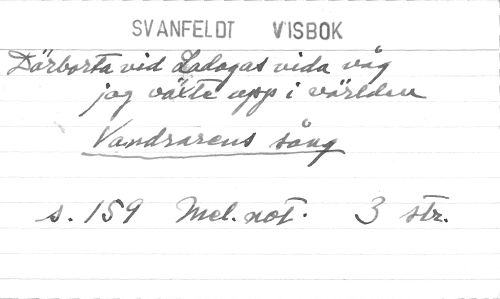 SVANFELDT VISBOK
Därborta vid Ladogas vida våg
jag växte upp i världen
Vandrarens sång
s. 159 Mel. not. 3 str.